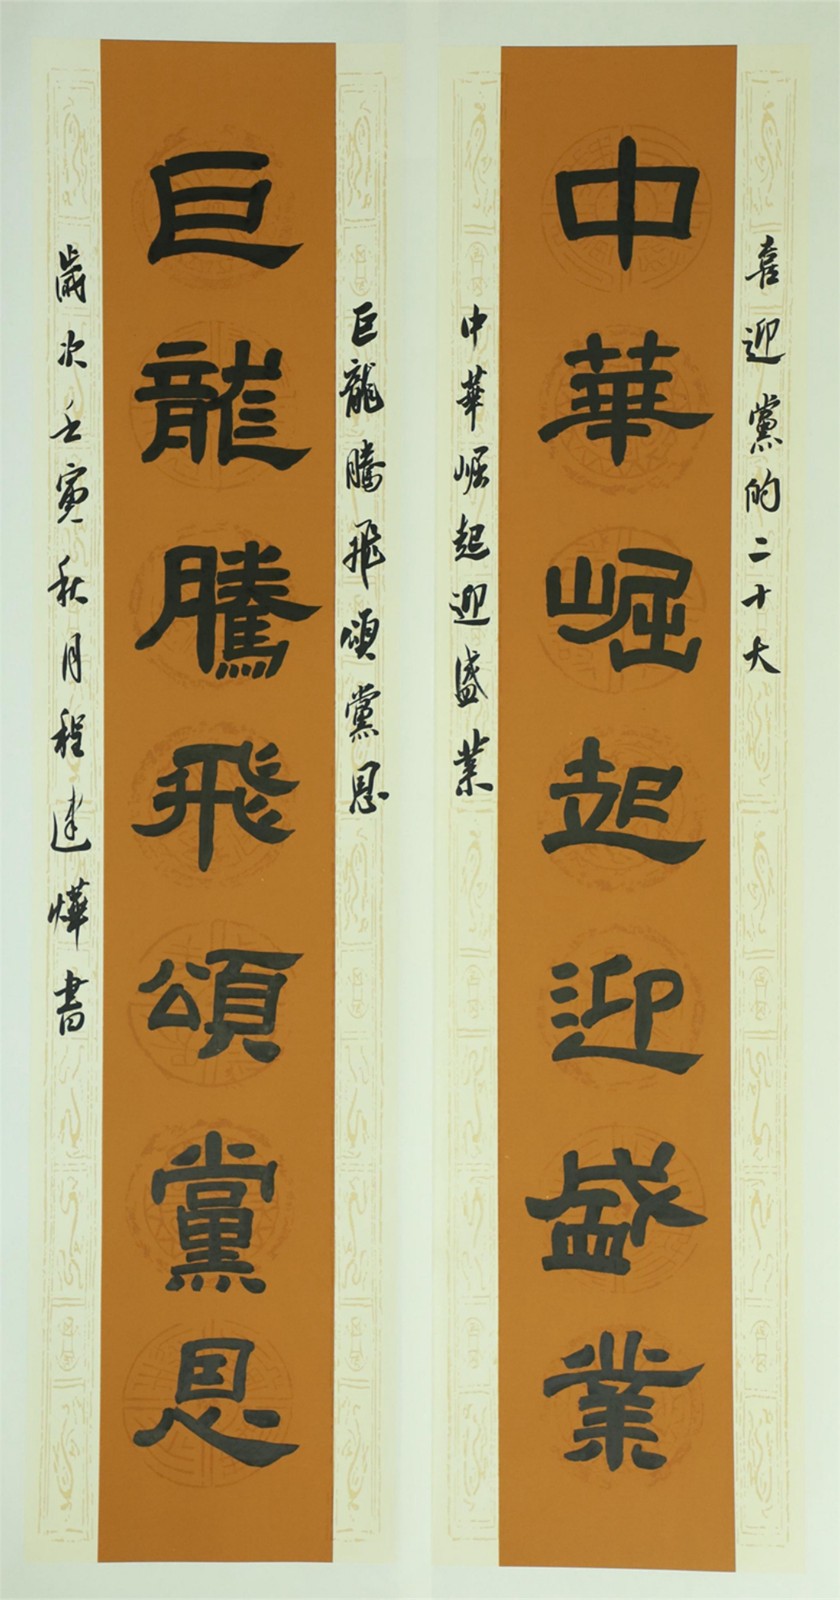 喜迎黨的二十大
中華崛起迎盛業
中華崛起迎盛業
巨龍騰飛頌黨恩
巨龍騰飛頌黨恩
歲次壬寅秋月程建燁書